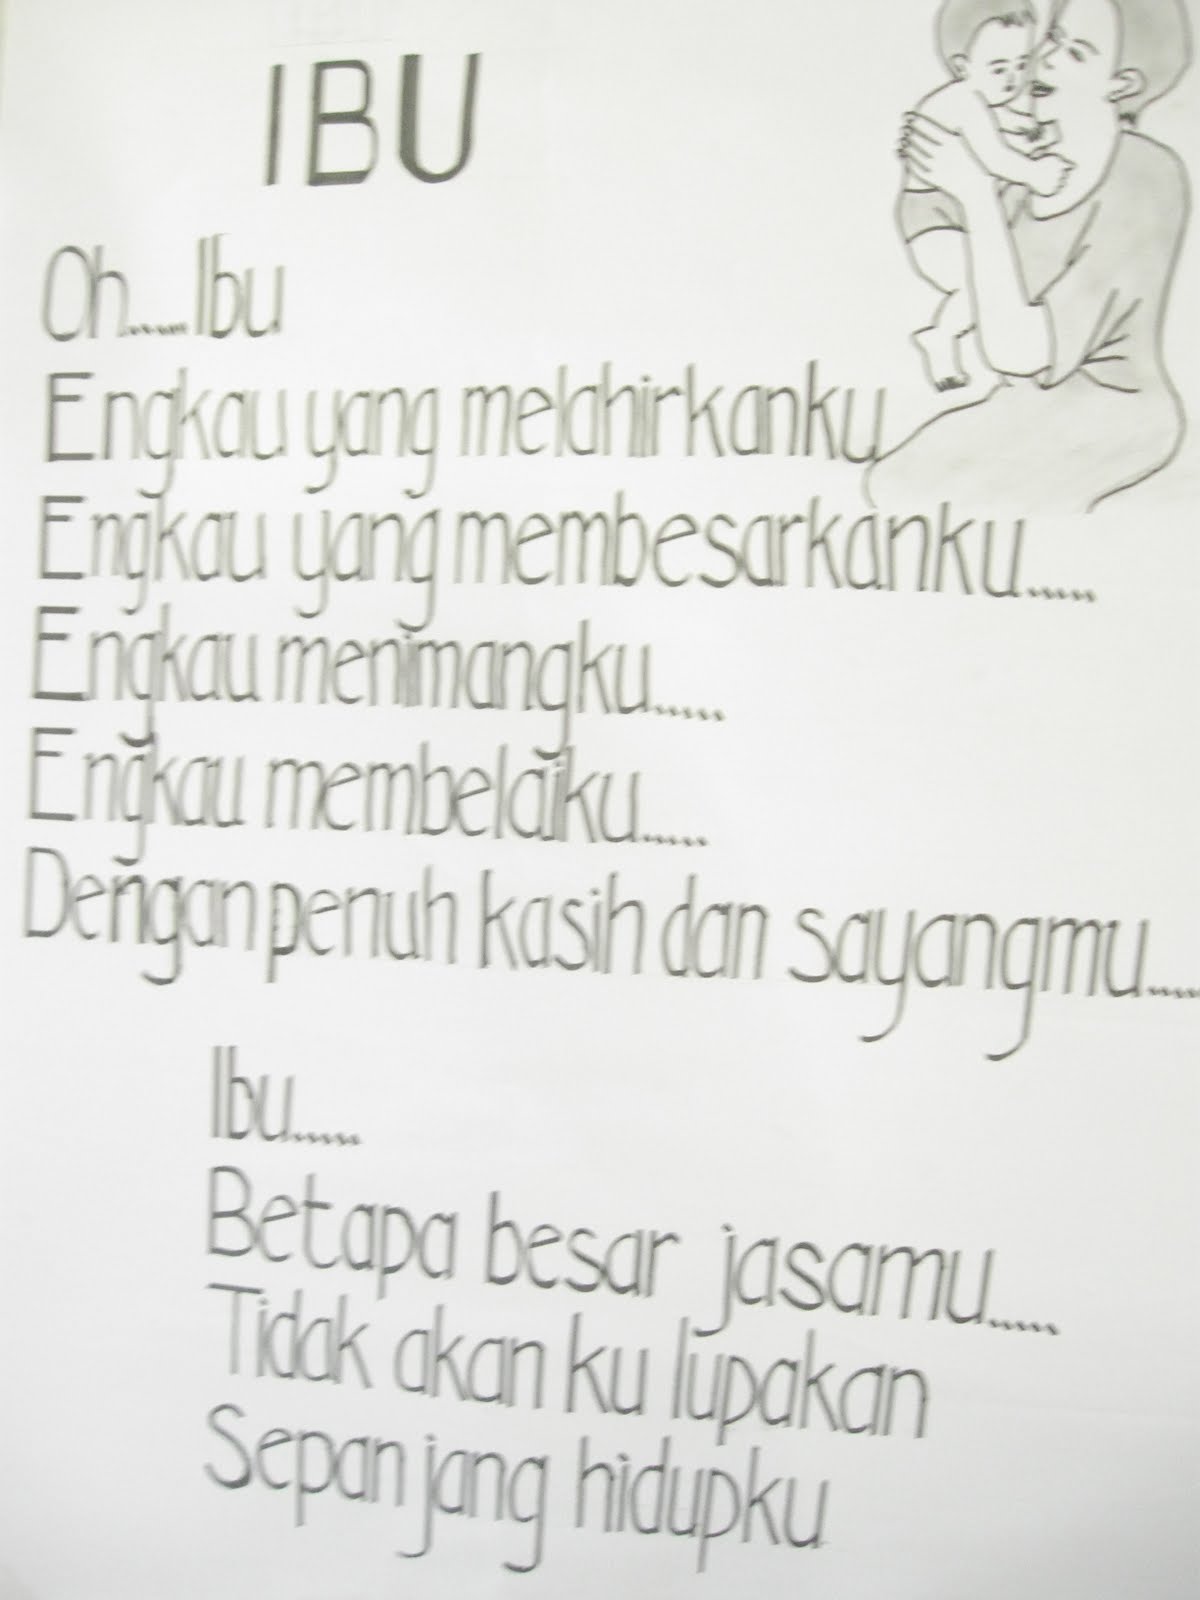 IBU
Oh......Ibu
Engkau yang melahirkanku
Engkau yang membesarkanku.....
Engkau menimangku.....
Engkau membelaiku.....
Dengan penuh kasih dan sayangmu.....
Ibu.....
Betapa besar jasamu.....
Tidak akan ku lupakan
Sepanjang hidupku